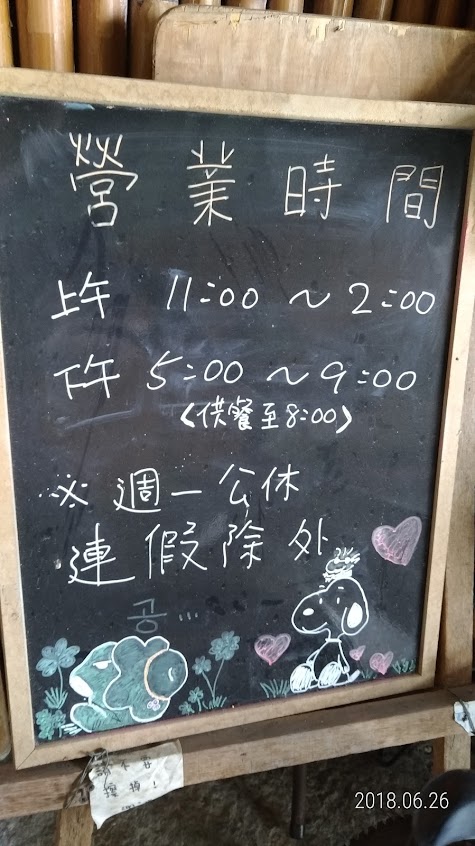 營業時間
上午 11:00 ~ 2:00
下午 5:00 ~ 9:00
<供餐至8:00>
※ 週一公休
連假除外
공...
2018.06.26